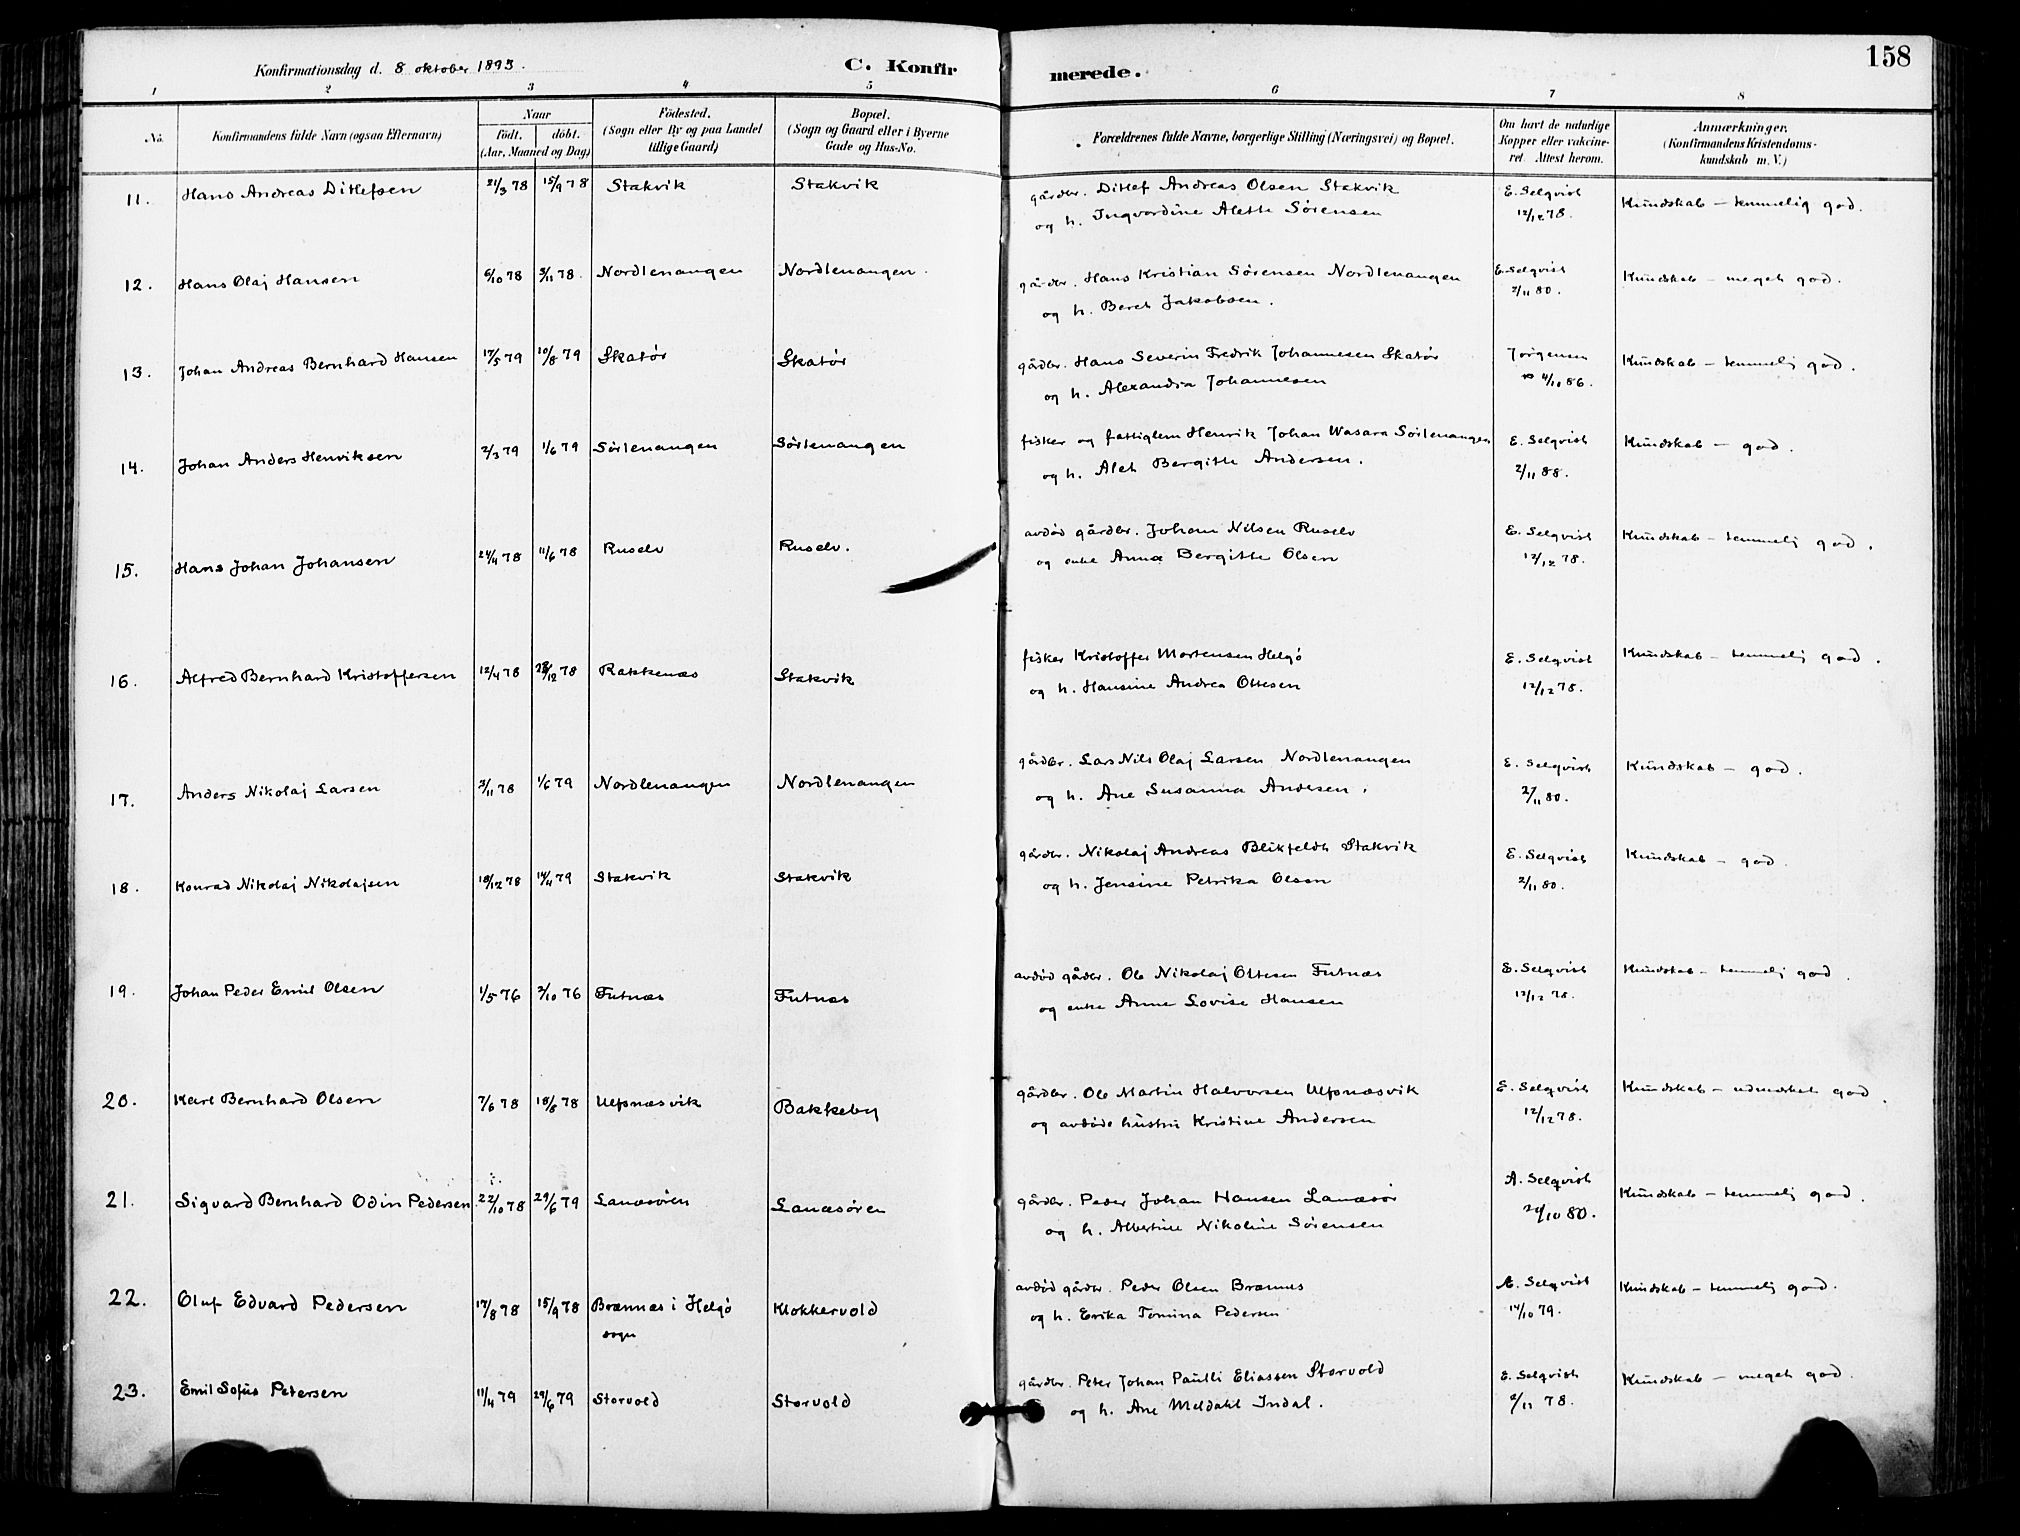 158
Konfirmationsdag d. 8 oktober 1893. C. Konfirmerede.
1 2 3 4 5 6 7 8
No. Konfirmandens fulde Navn (ogsaa Efternavn) Naar født. døbt. (Aar, Maaned og Dag) Fødested. (Sogn eller By og paa Landet tillige Gaard) Bopæl. (Sogn og Gaard eller i Byerne Gade og Hus-No. Forældrenes fulde Navne, borgerlige Stilling (Næringsvei) og Bopæl. Om havt de naturlige Kopper eller vakcineret. Attest herom. Anmærkninger. (Konfirmandens Kristendomskundskab m. V.)
11. Hans Andreas Ditlefsen 21/3 78 15/9 78 Stakvik Stakvik gårdbr. Ditlef Andreas Olsen Stakvik E. Selqvist Kundskab – temmelig god.
og h. Ingvardine Alette Sørensen 12/12 78.
12. Hans Olaj Hansen 6/10 78 3/11 78. Nordlenangen Nordlenangen. gårdbr. Hans Kristian Sørensen Nordlenangen E. Selqvist Kundskab – meget god.
og h. Beret Jakobsen. 2/11 80.
13. Johan Andreas Bernhard Hansen 17/5 79 10/8 79 Skatør Skatør gårdbr. Hans Severin Fredrik Johannesen Skatør Jørgensen Kundskab – temmelig god.
og h. Alexandra Johannesen 4/10 86.
14. Johan Anders Henriksen 2/3 79 1/6 79 Sørlenangen Sørlenangen fisker og fattiglem Henrik Johan Wasara Sørlenangen E. Selqvist Kundskab – god.
og h. Alet Bergitte Andersen. 2/11 88.
15. Hans Johan Johansen 24/4 78 11/6 78 Ruselv Ruselv. avdød gårdbr. Johan Nilsen Ruselv E. Selqvist Kundskab – temmelij god.
og enke Anna Bergitte Olsen 12/12 78.
16. Alfred Bernhard Kristoffersen 12/4 78 28/12 78 Rakkenæs Stakvik fisker Kristoffer Mortensen Helgö E. Selqvist Kundskab – temmelij god.
og h. Hansine Andrea Ottesen 12/12 78.
17. Anders Nikolaj Larsen 3/11 78 1/6 79 Nordlenangen Nordlenangen gårdbr. Lars Nils Olaj Larsen Nordlenangen E. Selqvist Kundskab – god.
og h. Ane Susanna Andersen. 2/11 80.
18. Konrad Nikolaj Nikolajsen 18/12 78 14/4 79 Stakvik Stakvik gårdbr. Nikolaj Andreas Blikfeldt Stakvik E. Selqvist Kundskab – god.
og h. Jensine Petrika Olsen 2/11 80.
19. Johan Peder Emil Olsen 1/5 76 2/10 76 Futnæs Futnæs avdød gårdbr. Ole Nikolaj Ottesen Futnæs E. Selqvist Kundskab – temmelij god.
og enke Anne Lovise Hansen 12/12 78.
20. Karl Bernhard Olsen 7/6 78 18/8 78 Ulfsnæsvik Bakkeby gårdbr. Ole Martin Halvorsen Ulfsnæsvik E. Selqvist Kundskab – udmerket god.
og avdøde hustru Kristine Andersen 12/12 78.
21. Sigvard Bernhard Odin Pedersen 22/10 78 29/6 79 Lanæsören Lanæsören gårdbr. Peder Johan Hansen Lanæsör A. Selqvist Kundskab – temmelij god.
og h. Albertine Nikoline Sørensen 24/10 80.
22. Oluf Edvard Pedersen 17/8 78 15/9 78 Brænnæs i Helgö sogn Klokkervold avdød gårdbr. Peder Olsen Brænnæs A. Selqvist Kundskab – temmelij god.
og h. Erika Tomina Pedersen 14/10 79.
23. Emil Sofus Petersen 11/4 79 29/6 79 Storvold Storvold gårdbr. Peter Johan Paulli Eliassen Storvold E. Selqvist Kundskab – meget god.
og h. Ane Meldahl Indal. 2/11 78.